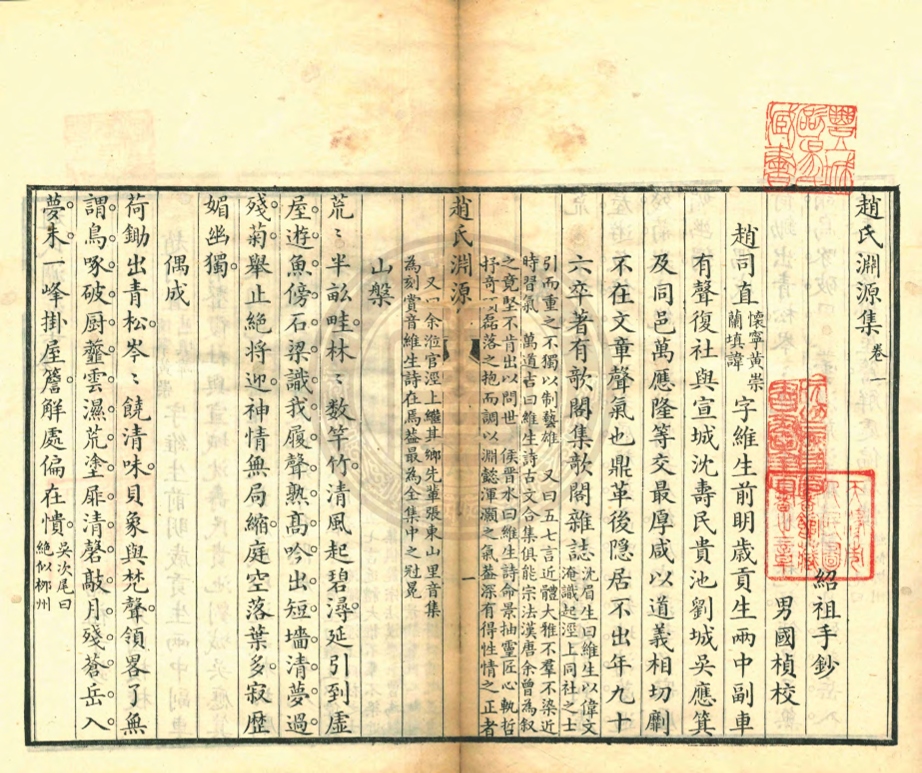 趙氏淵源集 卷一
紹祖手鈔
男國楨校
趙司直 懷寧黃崇
蘭填諱 字維生前明歲貢生兩中副車
有聲復社與宣城沈壽民貴池劉城吳應箕
及同邑萬應隆等交最厚咸以道義相切劘
不在文章聲氣也鼎革後隱居不出年九十
六卒著有歌閣集歌閣雜誌 沈眉生曰維生以偉文
淹識起涇上同社之士
引而重之不獨以制藝雄 又曰五七言近體大雅不羣不染近
時習氣 萬道吉曰維生詩古文合集俱能宗法漢唐余曾為叙
之竟堅不肯出以問世 侯晋水曰維生詩命景抽靈匠心軌哲
抒奇磊落之抱而調以淵懿渾灝之氣葢深有得性情之正者
趙氏淵源
一
又曰余涖官涇上繼其鄉先輩張東山里音集
為刻賞音維生詩在焉葢最為全集中之冠冕
山槃
荒〻半畝畦林〻數竿竹清風起碧潯延引到虛
屋遊魚傍石梁識我履聲熟高吟出短墻清夢過
殘菊舉止絕將迎神情無局縮庭空落葉多寂歷
媚幽獨
偶成
荷鋤出青松岑〻饒清味貝象與梵聲領畧了無
謂鳥啄破厨虀雲濕荒塗扉清磬敲月殘蒼岳入
夢朱一峰掛屋簷解處偏在憒 吳次尾曰
絕似柳州